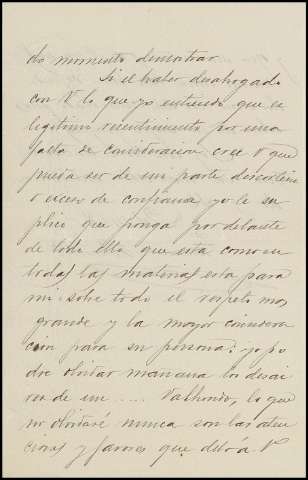 do momento demostrar.
Si el haber desahogado
con V lo que yo entiendo que es
legitimo resentimiento por una
falta de consideracion cree V que
pueda ser de mi parte descortesia
o exceso de confianza yo le su
plico que ponga por delante
de todo ello que esta como en
todas las materias esta para
mi sobre todo el respeto mas
grande y la mayor considera
cion para su persona: yo po
dre olvidar mañana los desai
res de un ..... Valhondo, lo que
no olvidaré nunca son las aten
ciones y favores que debo á V